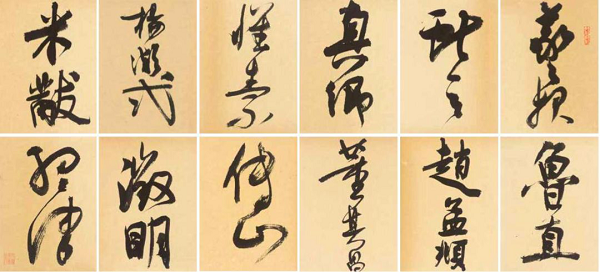 羲之
獻之
真卿
懷素
楊凝式
米黻
魯直
趙孟頫
董其昌
傅山
徵明
津